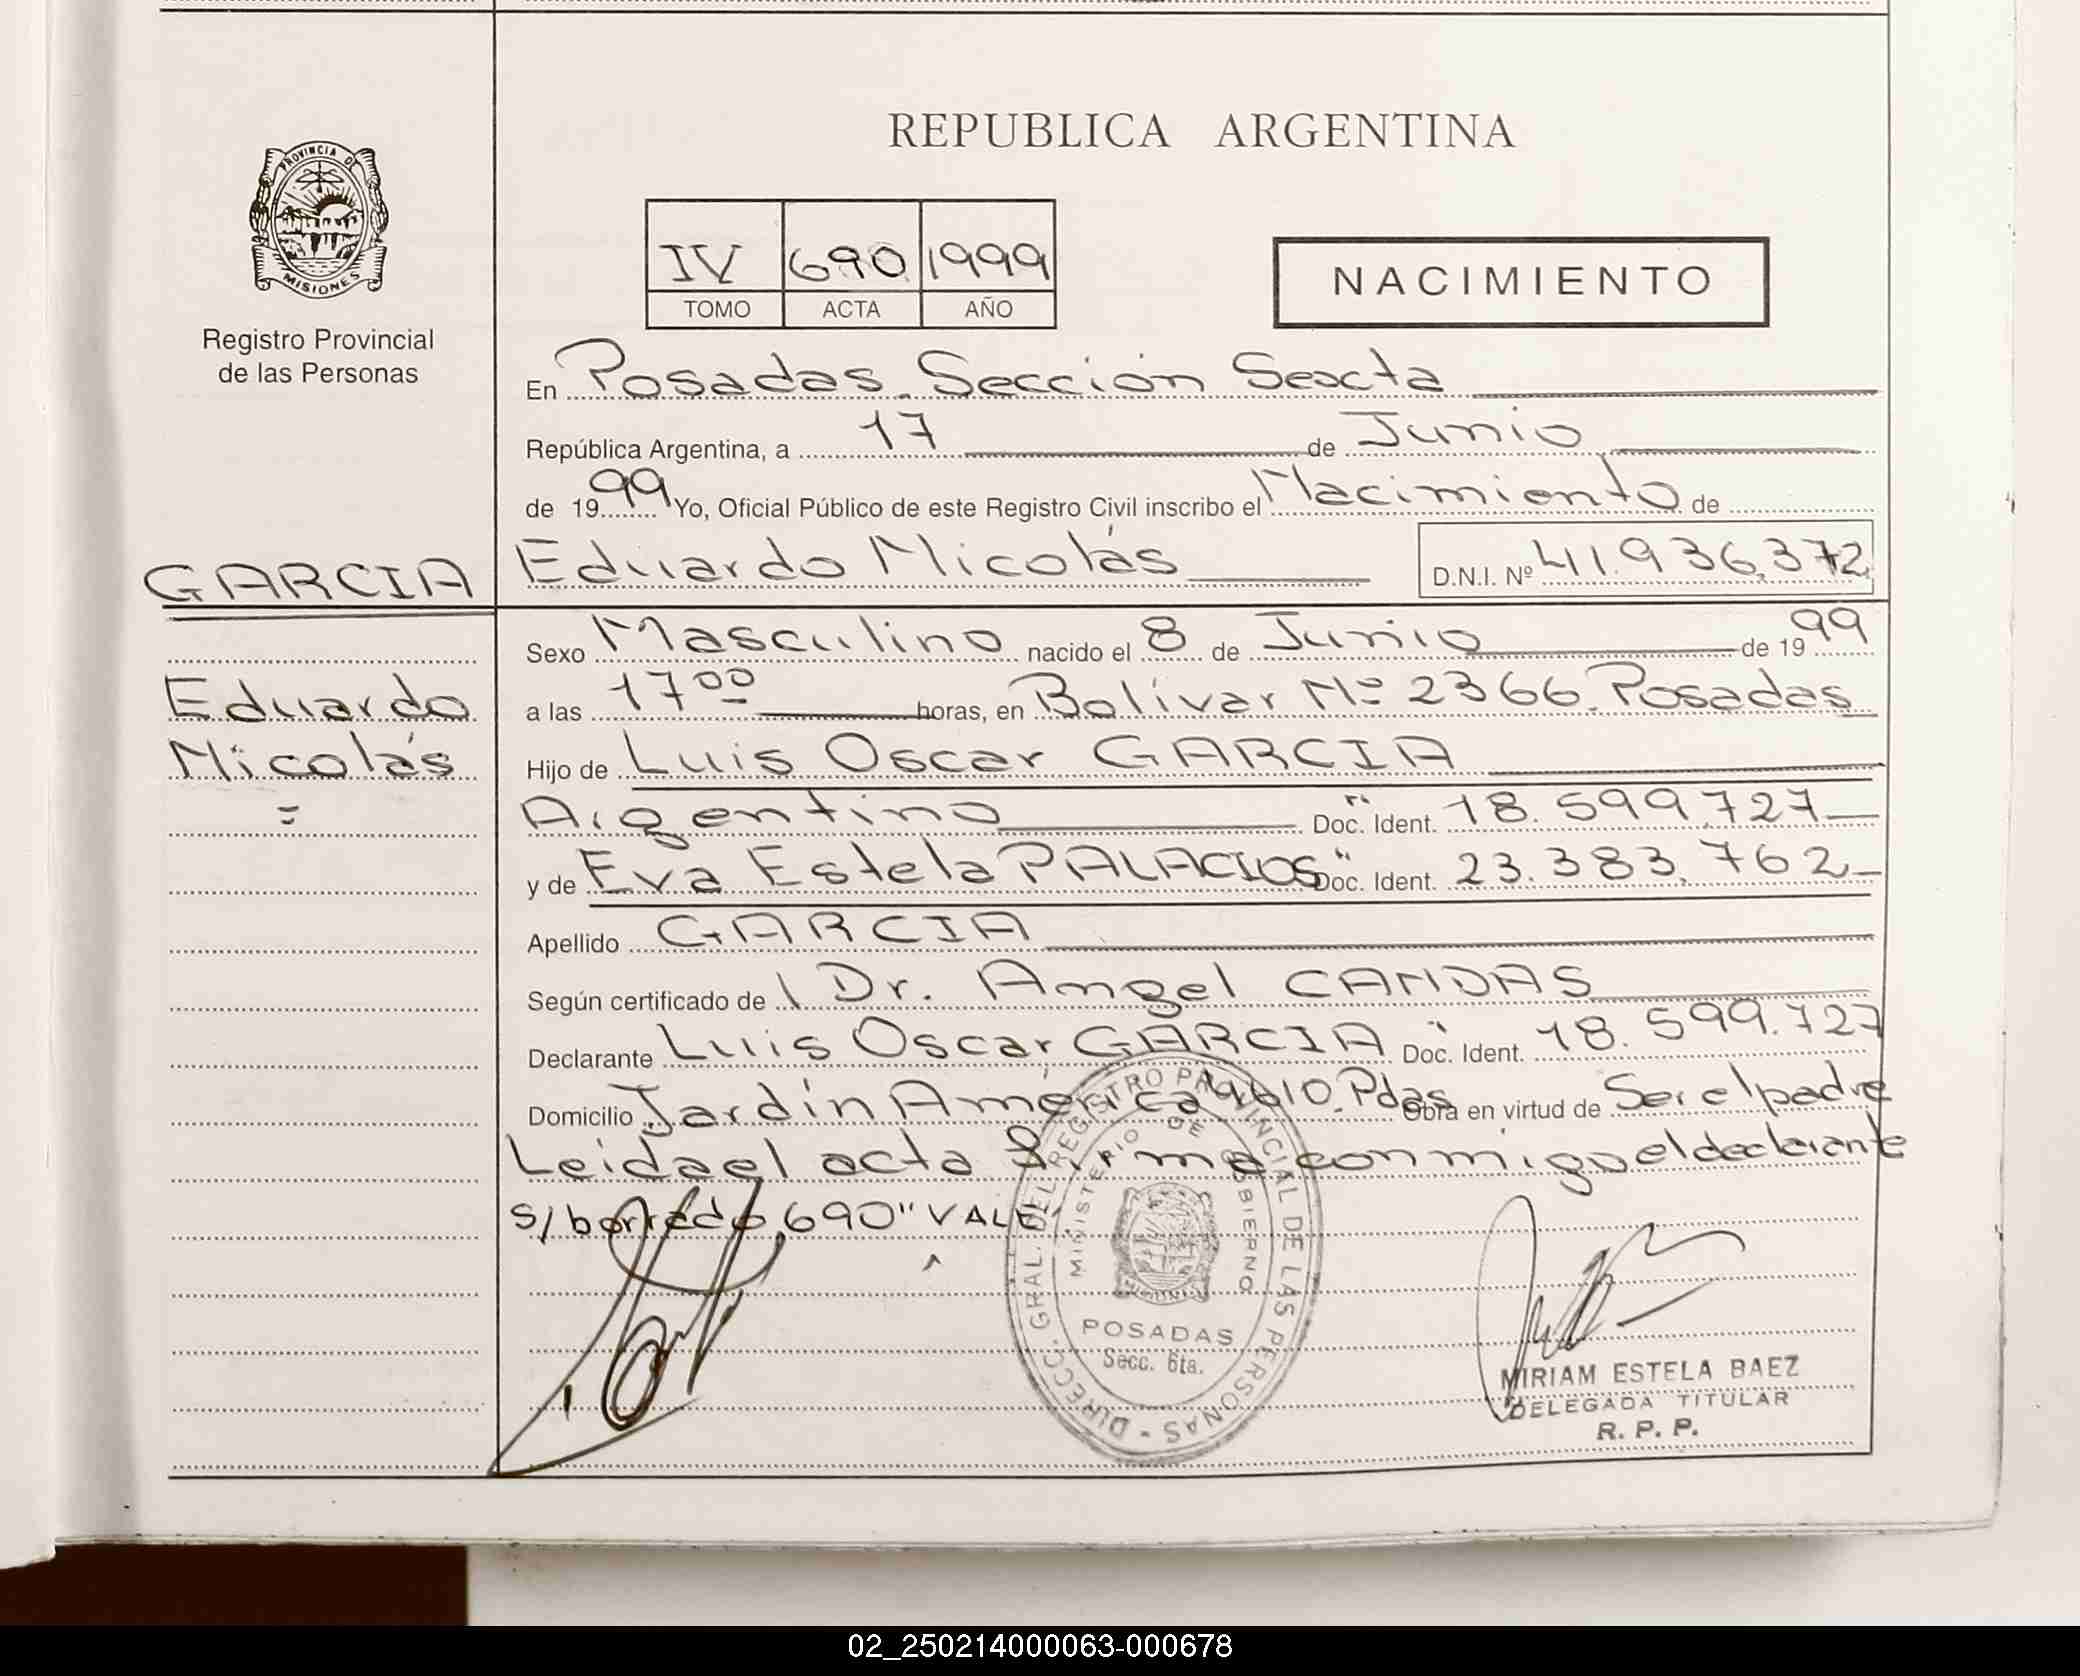 REPUBLICA ARGENTINA
PROVINCIA DE
MISIONES
Registro Provincial
de las Personas
IV 690 1999
TOMO ACTA AÑO
NACIMIENTO
En Posadas. Sección Sexcta
República Argentina, a 17 de Junio
de 1999 Yo, Oficial Público de este Registro Civil inscribo el Nacimiento de
GARCIA
Eduardo Nicolás
Eduardo Nicolás D.N.I. Nº 41.936.372
Sexo Masculino nacido el 8 de Junio de 1999
a las 17 00 horas, en Bolívar Nº 2366. Posadas
Hijo de Luis Oscar GARCIA
Argentino Doc. Ident. 18.599.727
y de Eva Estela PALACIOS Doc. Ident. 23.383.762
Apellido GARCIA
Según certificado de Dr. Angel CANDAS
Declarante Luis Oscar GARCIA Doc. Ident. 18.599.727
Domicilio Jardín América 4610. Pdas Obra en virtud de Ser el padre
Leida el acta firma conmigo el declarante
s/borrado 690 "VALE"
DIRECC. GRAL. DEL REGISTRO PROVINCIAL DE LAS PERSONAS -
MINISTERIO DE GOBIERNO
MISIONES
POSADAS
Secc. 6ta.
MIRIAM ESTELA BAEZ
DELEGADA TITULAR
R. P. P.
02_250214000063-000678